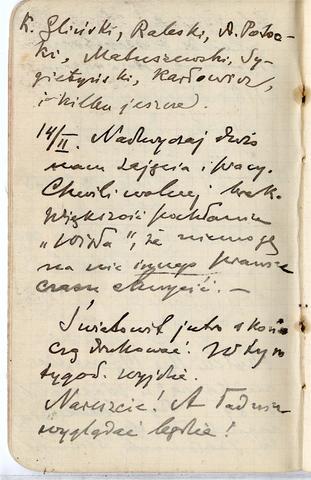 K. Gliński, Raleski, A. Potoc-
ki, Matuszewski, Sy-
gietyński, Karłowicz,
i kilku jeszcze.
14/II. Nadzwyczaj dużo
mam zajęcia i pracy.
Chwili wolnej brak.
Większość pochłania
„Wisła”, że nie mogę
na nic innego prawie
czasu chwycić. —
Światowit jutro skoń-
czą drukować. W tym
tygod. wyjdzie.
Nareszcie! A ładnie
wyglądać będzie!